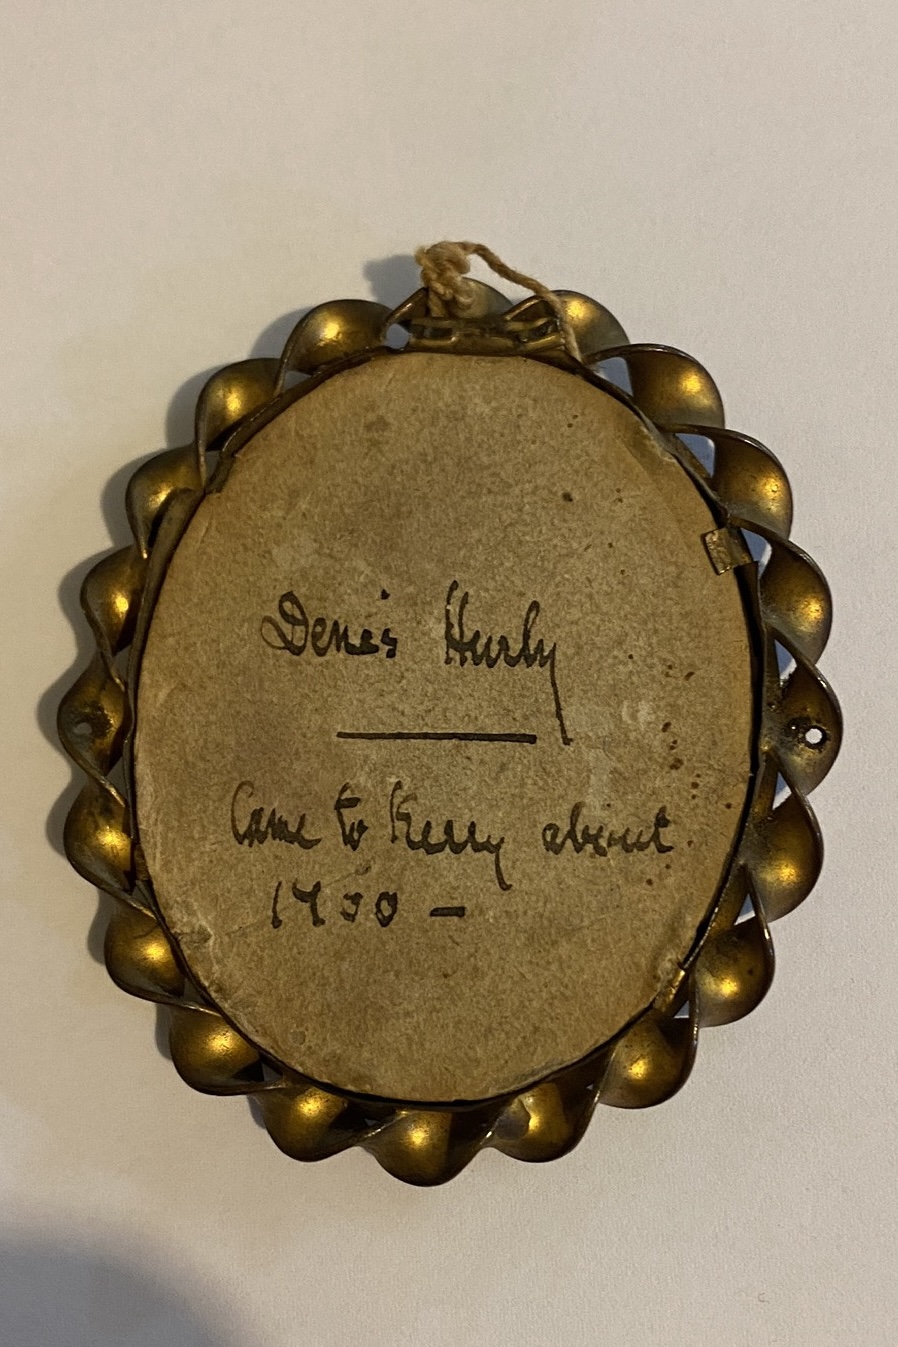 Denis Hurly
Came to Kerry about
1700 —